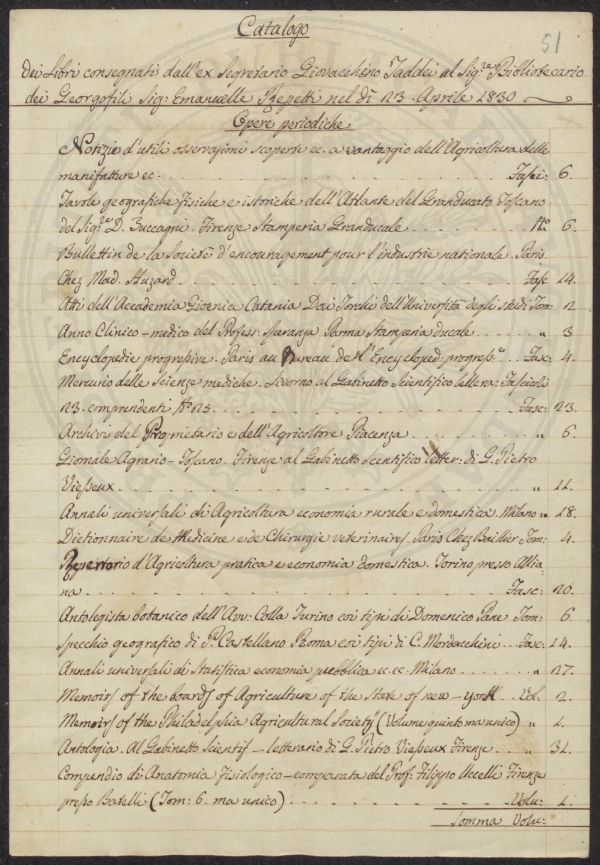 Catalogo
51
dei Libri consegnati dall'ex Segretario Giovacchino Taddei al Sig.re Bibliotecario
dei Georgofili Sig: Emanuelle Repetti nel dì 23 Aprile 1830
Opere periodiche
Notizie d'utili osservazioni scoperte ec. a vantaggio dell'Agricoltura delle
manifatture ec. Fasci: 6.
Tavole geografiche fisiche e istoriche dell'Atlante del Granducato Toscano
del Sig.re D. Zuccagni. Firenze Stamperia Granducale No 6.
Bulletin de la Societé d'encouragement pour l'industrie nationale. Paris.
Chez Mad. Huzard Fasc. 14.
Atti dell'Accademia Gioenia Catania Dai Torchi dell'Università degli Studi Tom: 2
Anno Clinico-medico del Profess: Speranza Parma Stamperia ducale " 3
Encyclopedie progressive. Paris au Bureau de l'Encycloped: progress.e Fasc: 4.
Mercurio delle Scienze mediche. Livorno al Gabinetto Scientifico lettera: Fascicoli
23. comprendenti No 25. Fasc: 23.
Archivi del Proprietario e dell'Agricoltore Piacenza " 6.
Giornale Agrario-Toscano. Firenze al Gabinetto Scentifico letter: di G. Pietro
Viesseux " 11.
Annali universali di Agricoltura economia rurale e domestica. Milano " 18.
Dictionnaire de Medicine e de Chirurgie veterinaire. Paris Chez Bailler Tom: 4.
Repertorio d'Agricoltura pratica e economia domestica. Torino presso Allia-
na Fasc: 20.
Antolegista botanico dell'Avv: Colla Turino coi tipi di Domenico Pane Tom: 6.
Specchio geografico di P. Castellano Roma coi tipi di C. Mordacchini Fasc: 14.
Annali universali di Statistica economia pubblica ec. ec. Milano " 27.
Memoirs of the boards of Agriculture of the State of new-york. Vol. 2.
Memoirs of the Philadelphia Agricultural Society (Volume quinto ma unico) " 1.
Antologia. Al Gabinetto Scientif-letterario di G. Pietro Viesseux Firenze " 31.
Compendio di Anatomia Fisiologico-comparata del Prof: Filippo Uccelli Firenze
presso Batelli (Tom: 6. ma unico) Volu: 1.
Somma Volu: